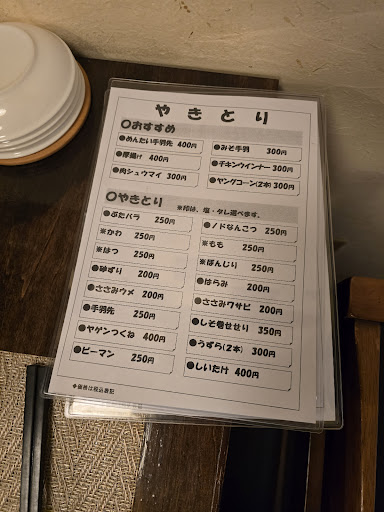 やきとり
○おすすめ
●めんたい手羽先 400円
●みそ手羽 300円
●厚揚げ 400円
●チキンウインナー 300円
●肉シュウマイ 300円
●ヤングコーン(2本) 300円
○やきとり ※印は、塩・タレ選べます。
●ぶたバラ 250円
●ノドなんこつ 250円
※かわ 250円
※もも 250円
※はつ 250円
※ぼんじり 250円
●砂ずり 200円
●はらみ 200円
●ささみウメ 200円
●ささみワサビ 200円
●手羽先 250円
●しそ巻せせり 350円
●ヤゲンつくね 400円
●うずら(2本) 300円
●ピーマン 250円
●しいたけ 400円
◆価格は税込表記